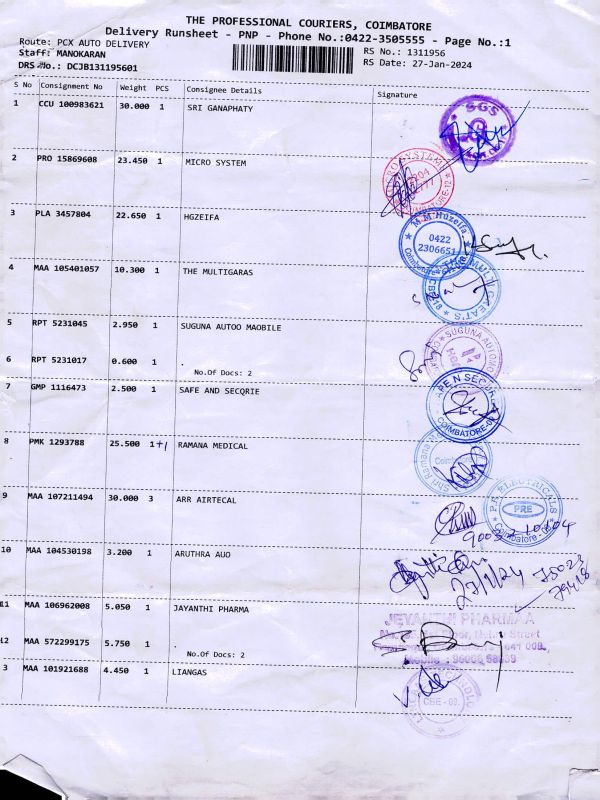 THE PROFESSIONAL COURIERS, COIMBATORE
Delivery Runsheet - PNP - Phone No.:0422-3505555 - Page No.:1
Route: PCX AUTO DELIVERY
Staff: MANOKARAN
DRS No.: DCJB131195601
RS No.: 1311956
RS Date: 27-Jan-2024
S No Consignment No Weight PCS Consignee Details Signature
1 CCU 100983621 30.000 1 SRI GANAPHATY
SGS
2 PRO 15869608 23.450 1 MICRO SYSTEM
MICROSYSTEM
COIMBATORE-12
3 PLA 3457804 22.650 1 HGZEIFA
M.M Huzeifa
0422
2306651
Coimbatore
4 MAA 105401057 10.300 1 THE MULTIGARAS
5 RPT 5231045 2.950 1 SUGUNA AUTOO MAOBILE
SUGUNA AUTO
6 RPT 5231017 0.600 1 . No.Of Docs: 2
7 GMP 1116473 2.500 1 SAFE AND SECQRIE
COIMBATORE
8 PMK 1293788 25.500 1+1 RAMANA MEDICAL
Shri Ramana
Coimbatore
9 MAA 107211494 30.000 3 ARR AIRTECAL
P.R. ELECTRICALS
PRE
Coimbatore
10 MAA 104530198 3.200 1 ARUTHRA AUO
27/1/24
75023
79418
11 MAA 106962008 5.050 1 JAYANTHI PHARMA
JEYANTHI PHARMAA
Street
12 MAA 572299175 5.750 1 . No.Of Docs: 2
Mobile
3 MAA 101921688 4.450 1 LIANGAS
CBE